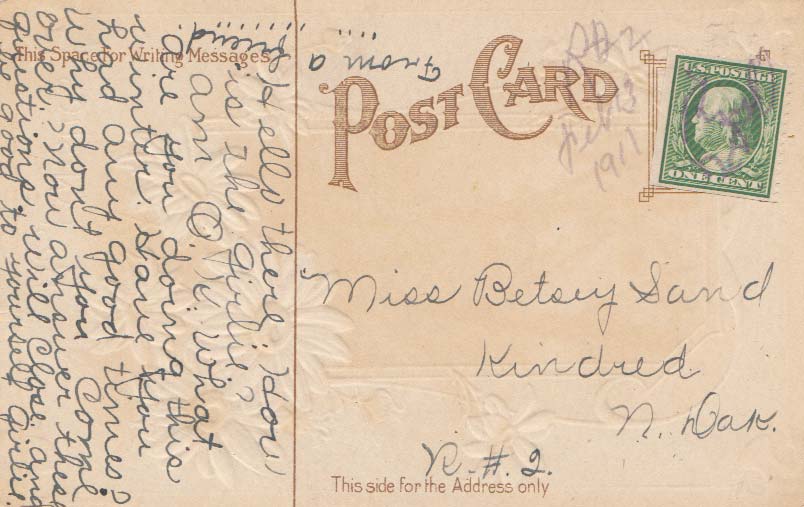 This Space for Writing Messages
POST CARD
R.D. 2
Feb 13
1911
U.S. POSTAGE
ONE CENT
Hello there how
is the girlie?
am O.K. What
are you doing this
winter. Have you
had any good times?
Why don't you Come
over. now answer these
questions will close and
be good to yourself Girlie.
From a
friend
Miss Betsey Sand
Kindred
N. Dak.
R. #. 2.
This side for the Address only